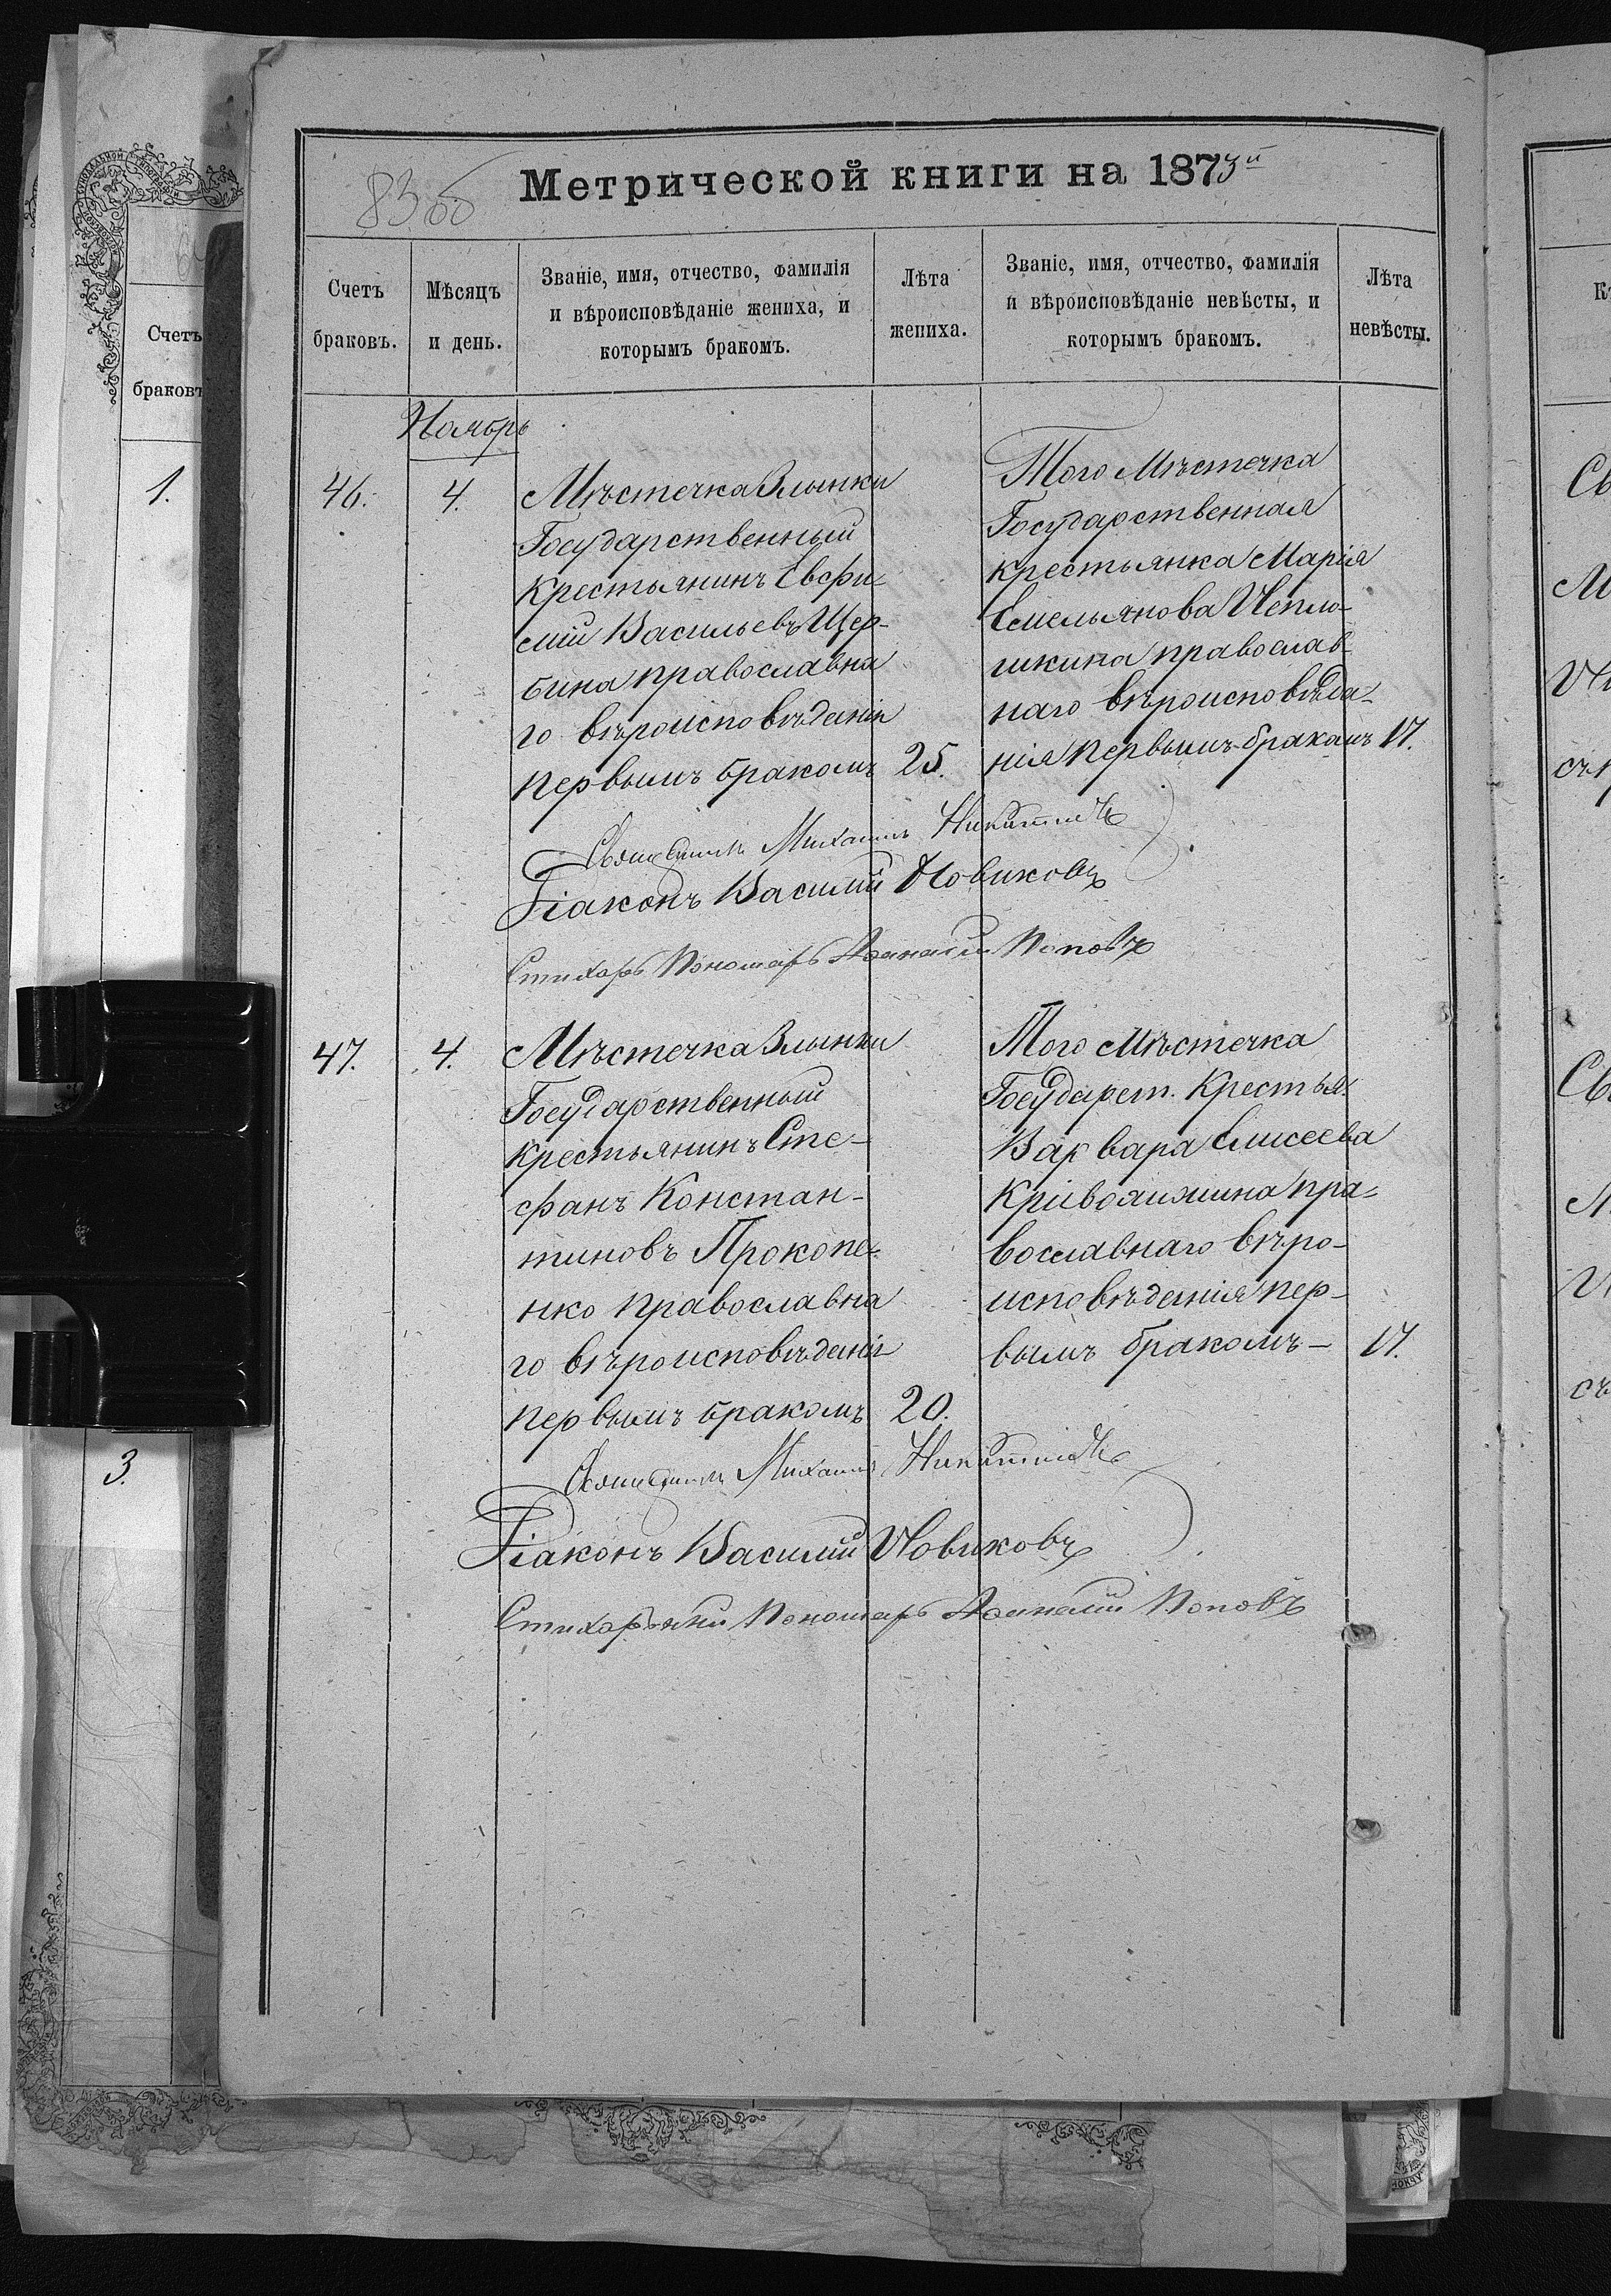 83 об
Метрической книги на 1873й
Счетъ браковъ.
Мѣсяцъ и день.
Званіе, имя, отчество, фамилія
и вѣроисповѣданіе жениха, и
которымъ бракомъ.
Лѣта
жениха.
Званіе, имя, отчество, фамилія
и вѣроисповѣданіе невѣсты, и
которымъ бракомъ.
Лѣта
невѣсты.
Ноябрь
46. 4.
Мѣстечка Злынки
Государственный
крестьянинъ Евфи-
мій Васильевъ Щер-
бина православна
го вѣроисповѣданія
первымъ бракомъ 25.
Того Мѣстечка
Государственная
крестьянка Марія
Емельянова Непло-
шкина православ-
наго вѣроисповѣда-
нія первымъ бракомъ 17.
Священникъ Михаилъ Никитинъ
Діаконъ Василій Новиковъ
Стихарь Пономарь Поповъ
47. 4.
Мѣстечка Злынки
Государственный
крестьянинъ Сте-
фанъ Констан-
тиновъ Прокопе-
нко православна
го вѣроисповѣданія
первымъ бракомъ 20.
Того Мѣстечка
Государст. Крестья.
Варвара Елисеева
пра-
вославнаго вѣро-
исповѣданія пер-
вымъ бракомъ — 17.
Священникъ Михаилъ Никитинъ
Діаконъ Василій Новиковъ
Стихарный Пономарь Поповъ
Счетъ
браковъ
1.
3.